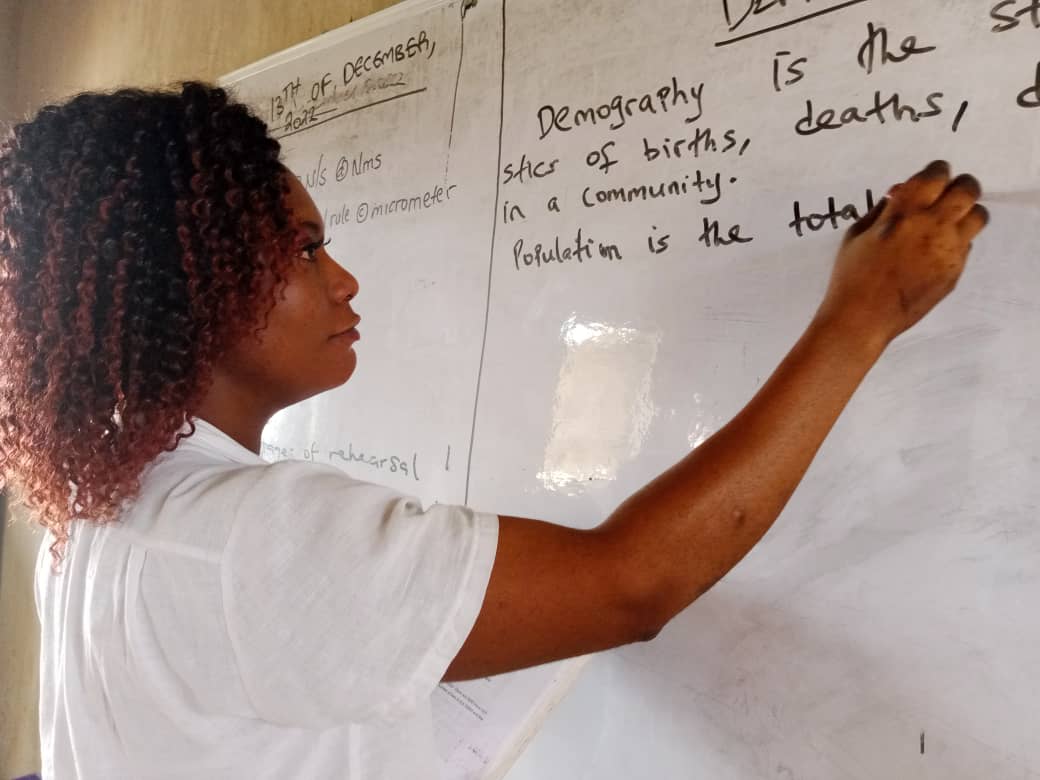 13TH OF DECEMBER,
2022
N/s @ Nms
rule © micrometer
of rehearsal
Demography is the st
stics of births, deaths, d
in a community.
Population is the total